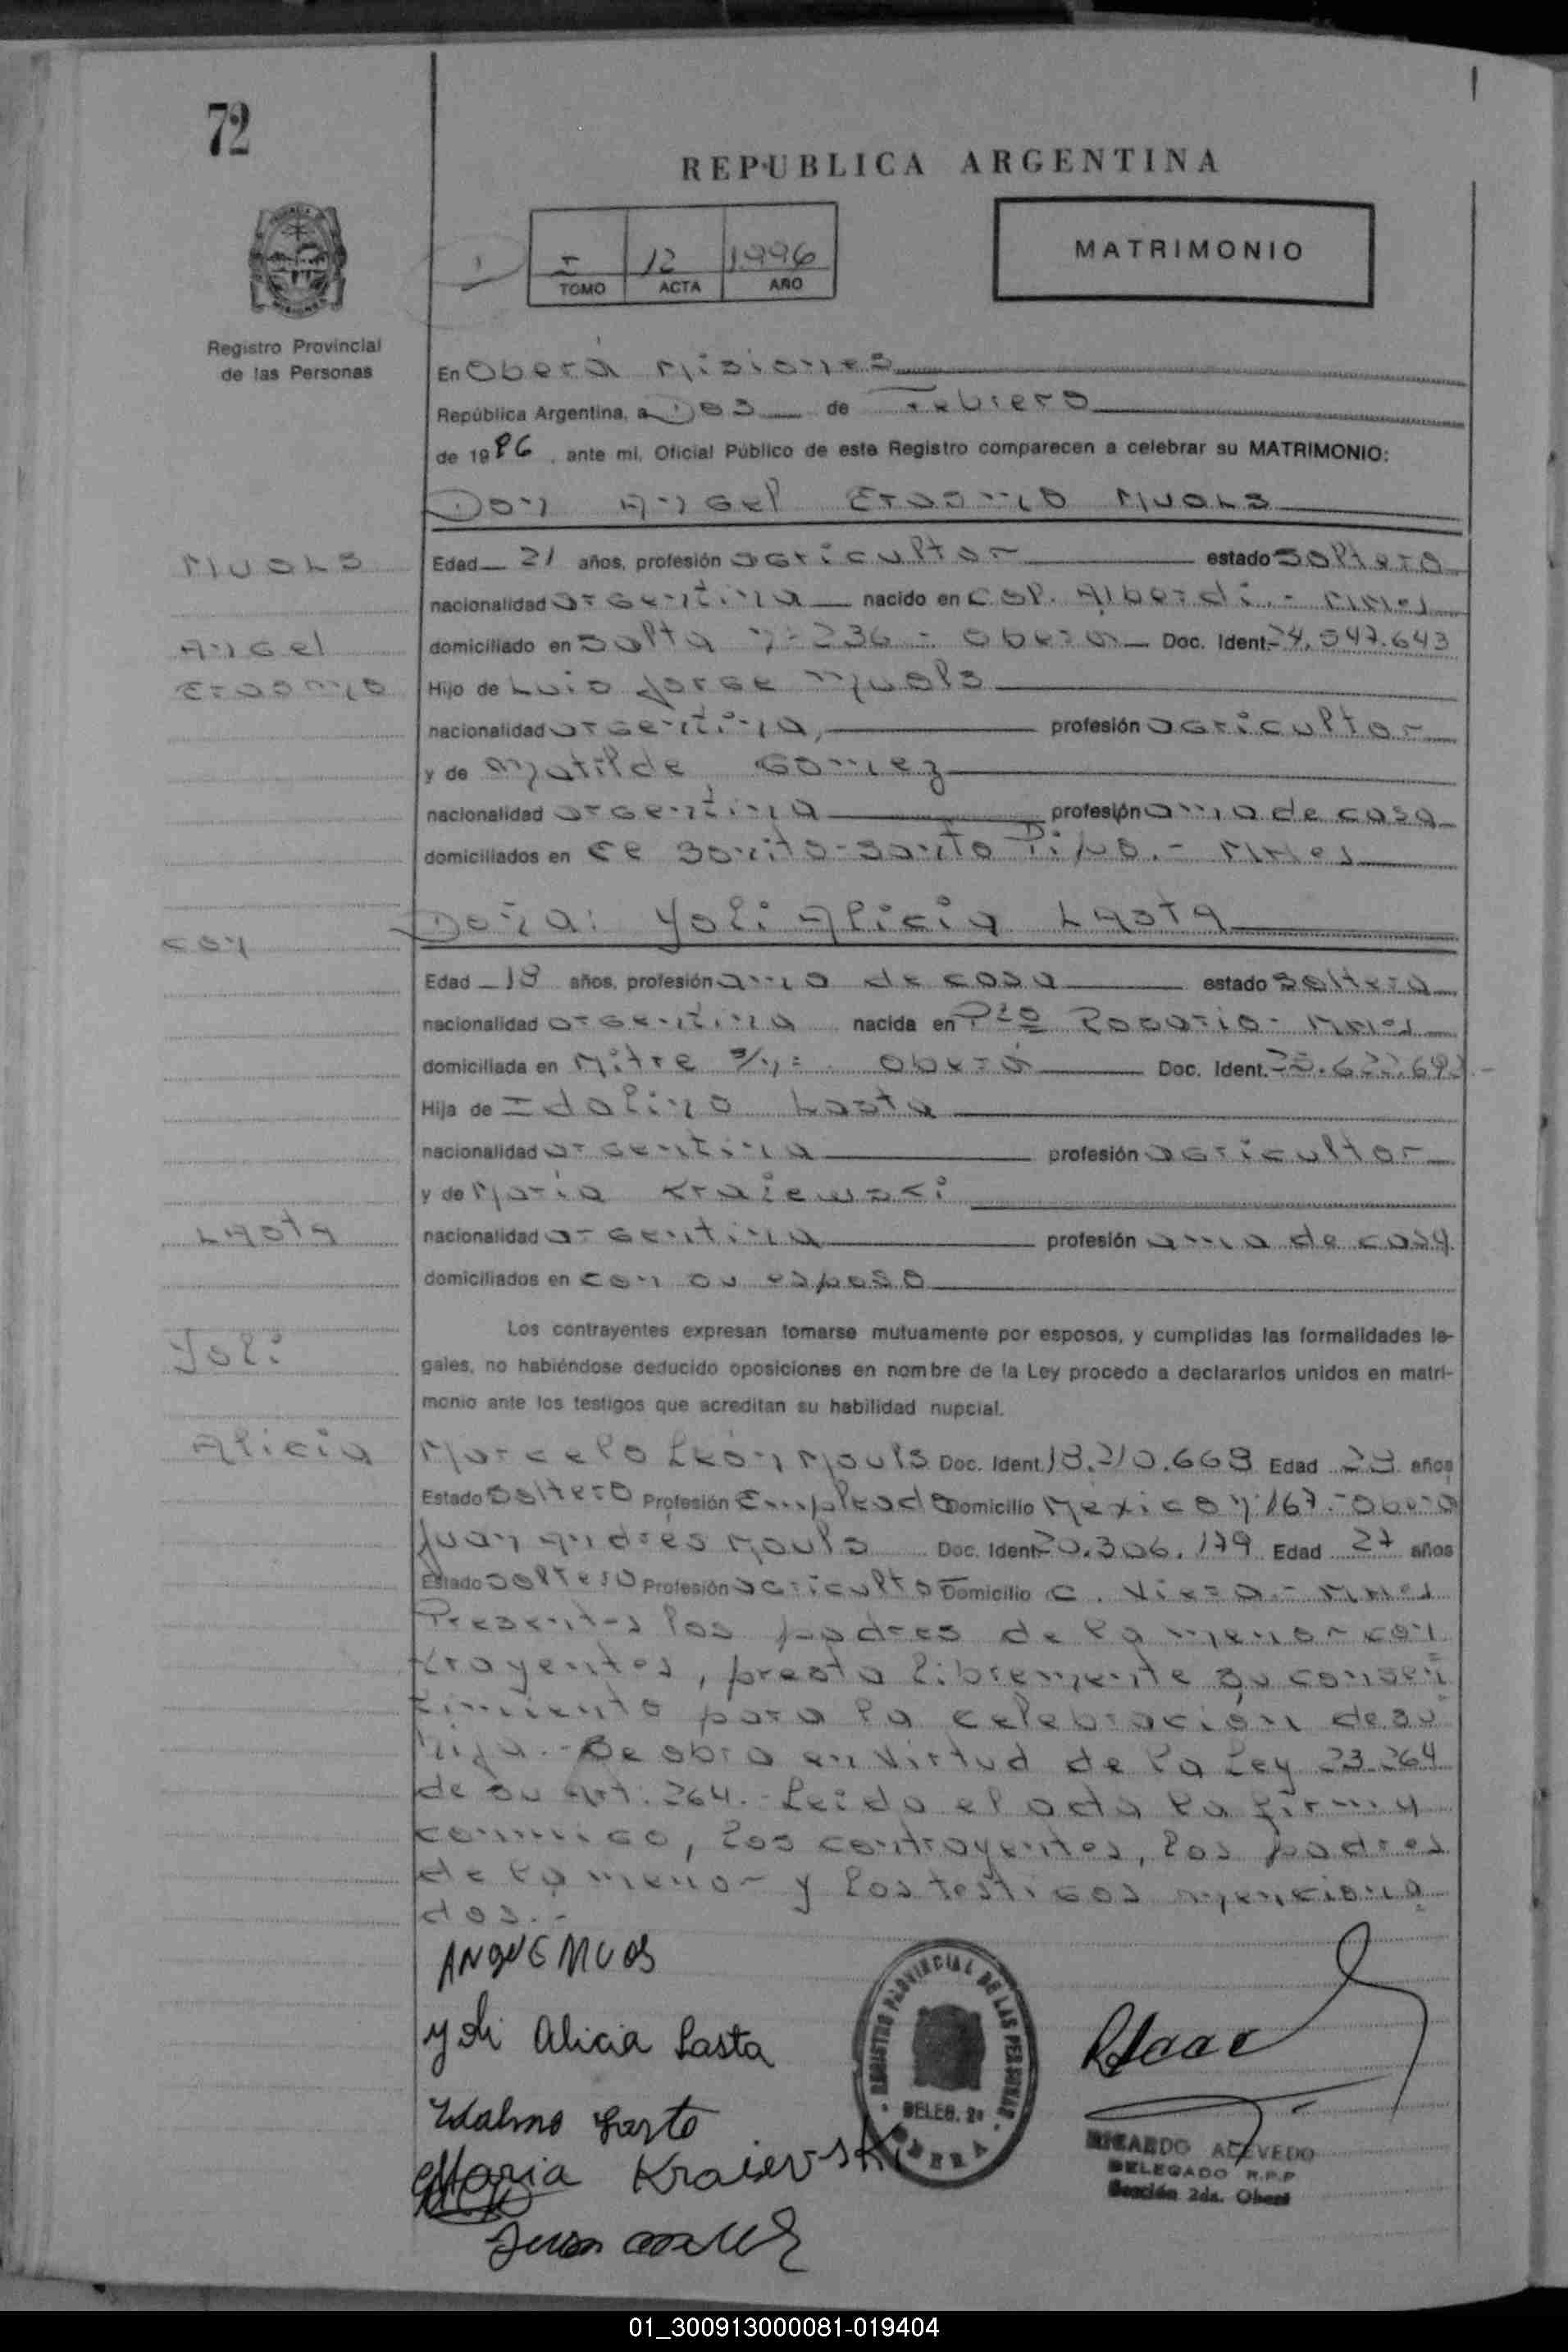 72
REPUBLICA ARGENTINA
MATRIMONIO
I 12 1996
TOMO ACTA AÑO
Registro Provincial
de las Personas
En Oberá Misiones
República Argentina, a Dos de Febrero
de 19 96, ante mi, Oficial Público de este Registro comparecen a celebrar su MATRIMONIO:
Don Angel Erasmio Muols
Muols
Angel
Erasmio
Edad 21 años, profesión agricultor estado soltero
nacionalidad argentina nacido en Col. Alberdi.- Mnes
domiciliado en Salta nº 236 - Oberá Doc. Ident. 24.547.643
Hijo de Luis Jorge Muols
nacionalidad argentina, profesión agricultor
y de Matilde Gomez
nacionalidad argentina profesión ama de casa
domiciliados en Ce Bonito-Santo Pipo.- Mnes
Doña: Yoli Alicia Lasta
con
Edad 18 años, profesión ama de casa estado soltera
nacionalidad argentina nacida en Pto Rosario- Mnes
domiciliada en Mitre s/n= Oberá Doc. Ident.
Hija de Idalino Lasta
nacionalidad argentina profesión agricultor
y de María Kraiewski
Lasta
nacionalidad argentina profesión ama de casa
domiciliados en con su esposo
Yoli
Alicia
Los contrayentes expresan tomarse mutuamente por esposos, y cumplidas las formalidades le-
gales, no habiéndose deducido oposiciones en nombre de la Ley procedo a declararlos unidos en matri-
monio ante los testigos que acreditan su habilidad nupcial.
Marcelo León Mouls Doc. Ident. 18.210.668 Edad 28 años
Estado Soltero Profesión Empleado Domicilio México nº 167.- Oberá
Juan Andrés Mouls Doc. Ident. 20.306.179 Edad 27 años
Estado soltero Profesión agricultor Domicilio C. Viera.- Mnes
Presentes los padres de la menor con
trayentes, presta libremente su consen
timiento para la celebración de su
hija.- Se obra en virtud de la Ley 23.264
de su Art: 264.- Leida el acta la firma
conmigo, los contrayentes, los padres
de la menor y los testigos menciona
dos.-
Yoli Alicia Lasta
Maria Kraievski
REGISTRO PROVINCIAL DE LAS PERSONAS
DELEG. 2ª
OBERA
RICARDO ACEVEDO
DELEGADO R.P.P
Sección 2da. Oberá
01_300913000081-019404